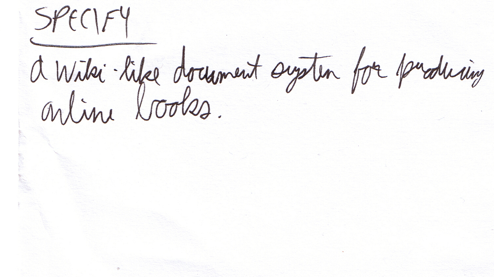 SPECIFY
a Wiki-like document system for producing
online books.